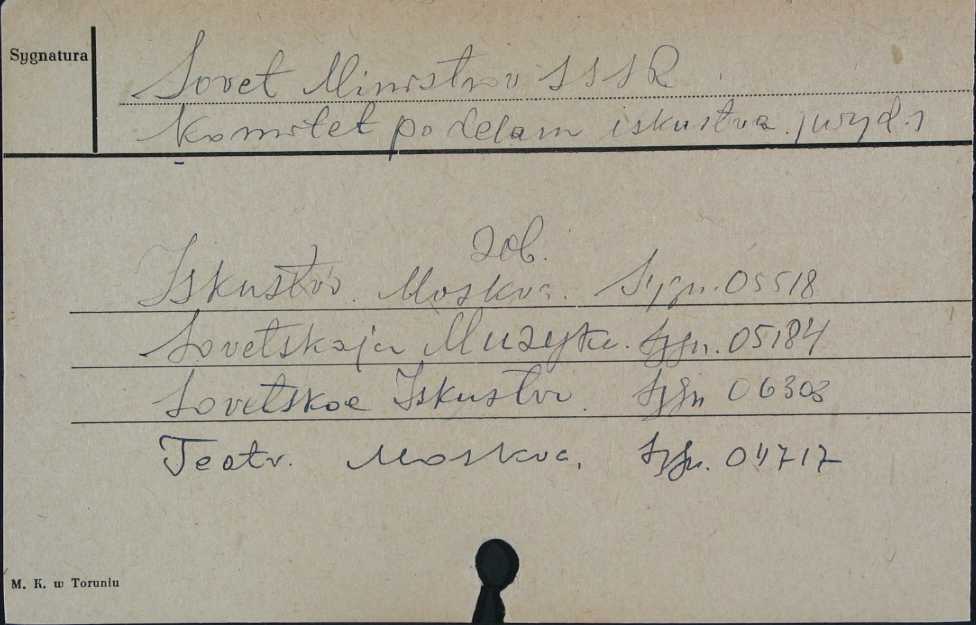 Sygnatura
Sovet Ministrov SSSR
Komitet po delam iskustva.
zob.
Iskustvo. Moskva. Sygn. 05518
Sovetskaja Muzyka. Sygn. 05184
Sovetskoe Iskustvo. Sygn 06303
Teatr. Moskva. Sygn. 04717
M. K. w Toruniu